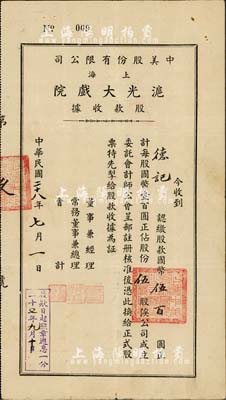 Nº 069
中美股份有限公司
上海
滬光大戲院
股款收據
今收到
德記 認繳股款國幣伍百圓正
計每股國幣壹百圓正佔股份伍股俟公司成立
委託會計師呈部註冊核准後憑此換給正式股
票特先掣給股款收據為証
董事兼經理
常務董事兼總理
會計
中華民國二十八年七月一日